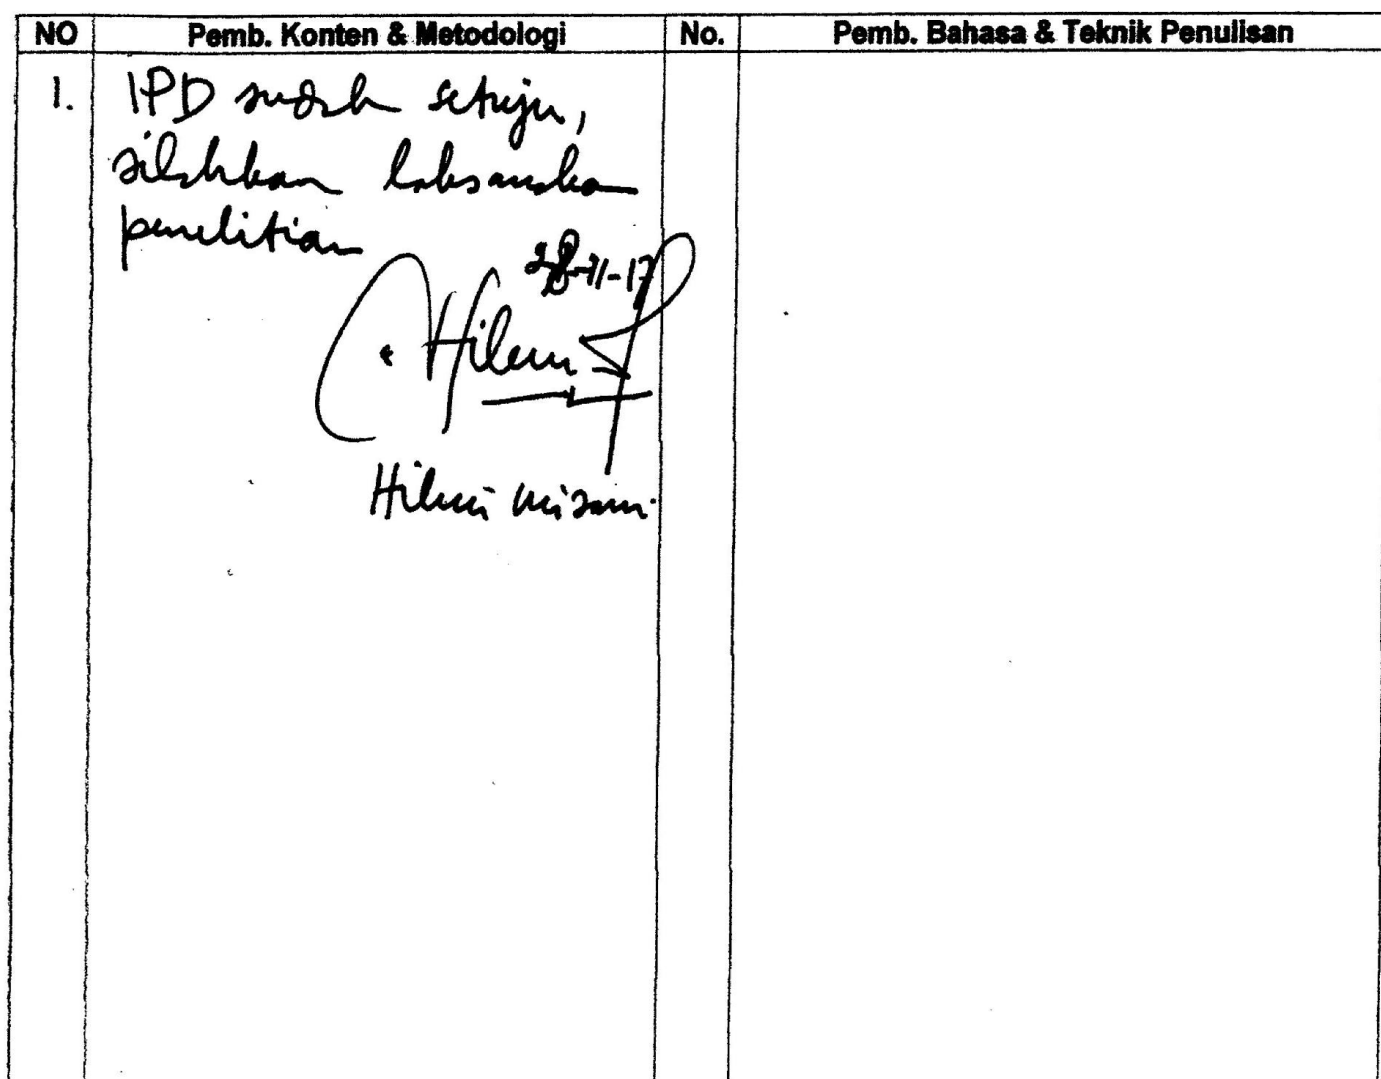 NO Pemb. Konten & Metodologi No. Pemb. Bahasa & Teknik Penulisan
1. IPD sudah setuju,
silahkan laksanakan
penelitian
28-11-17
Hilmi
Hilmi